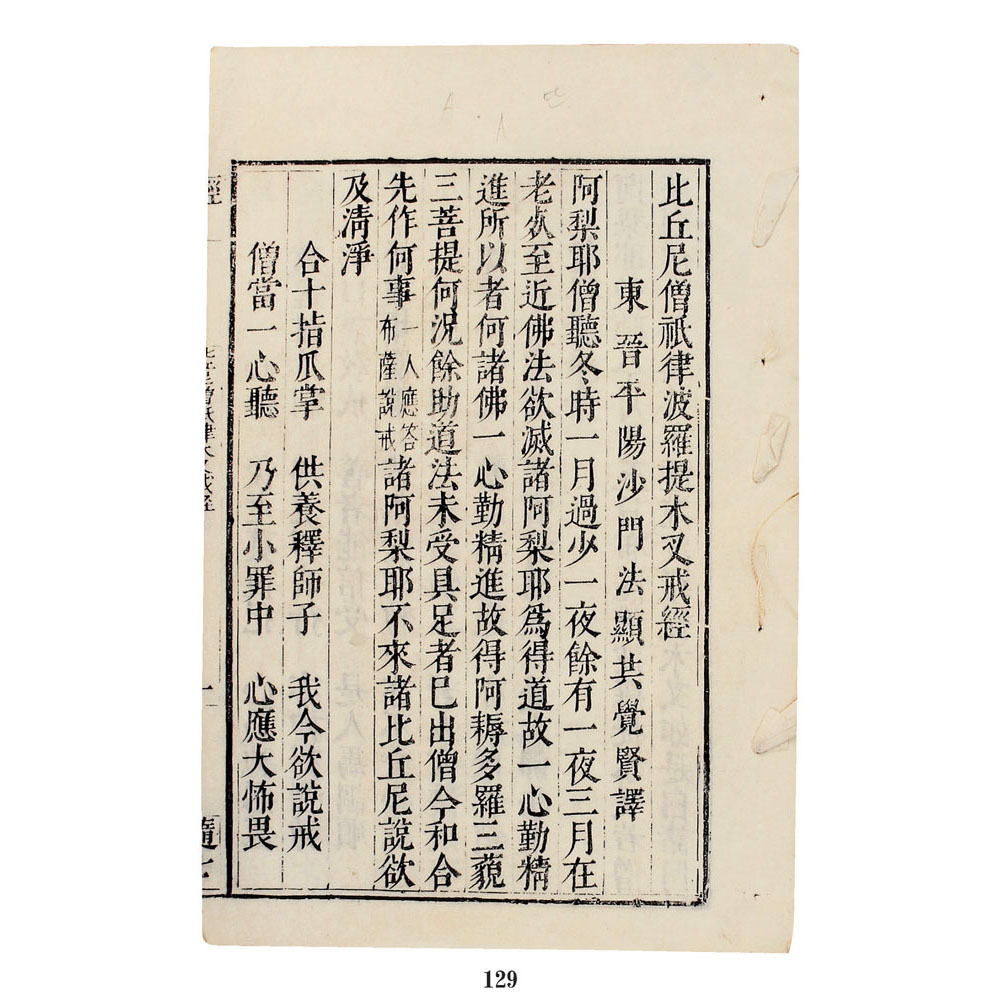 比丘尼僧祇律波羅提木叉戒經
東晉平陽沙門法顯共覺賢譯
阿梨耶僧聽冬時一月過少一夜餘有一夜三月在
老死至近佛法欲滅諸阿梨耶爲得道故一心勤精
進所以者何諸佛一心勤精進故得阿耨多羅三藐
三菩提何況餘助道法未受具足者已出僧今和合
先作何事一人應答布薩說戒諸阿梨耶不來諸比丘尼說欲
及淸淨
合十指爪掌 供養釋師子 我今欲說戒
僧當一心聽 乃至小罪中 心應大怖畏
經
一
隨七
129